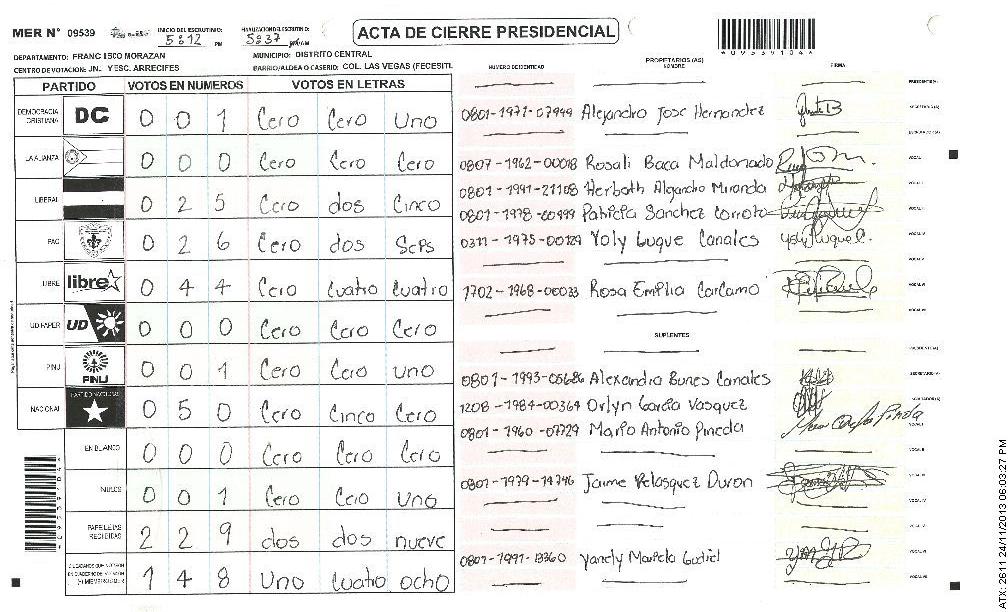 MER N° 09539 INICIO DEL ESCRUTINIO: 5:12 PM FINALIZACION DEL ESCRUTINIO: 5:37 PM
ACTA DE CIERRE PRESIDENCIAL
DEPARTAMENTO: FRANCISCO MORAZAN MUNICIPIO: DISTRITO CENTRAL
CENTRO DE VOTACION: JN. YESC. ARRECIFES BARRIO/ALDEA O CASERIO: COL. LAS VEGAS (FECESITL
PARTIDO VOTOS EN NUMEROS VOTOS EN LETRAS
DEMOCRACIA CRISTIANA DC 0 0 1 Cero Cero Uno
LA ALIANZA 0 0 0 Cero Cero Cero
LIBERAL 0 2 5 Cero dos Cinco
PAC 0 2 6 Cero dos Seis
LIBRE libre 0 4 4 Cero Cuatro Cuatro
UD FAPER UD 0 0 0 Cero Cero Cero
PINU PINU 0 0 1 Cero Cero uno
NACIONAL PARTIDO NACIONAL 0 5 0 Cero Cinco Cero
EN BLANCO 0 0 0 Cero Cero Cero
NULOS 0 0 1 Cero Cero uno
PAPELETAS RECIBIDAS 2 2 9 dos dos nueve
1 4 8 Uno Cuatro ocho
NUMERO DE IDENTIDAD PROPIETARIOS (AS) NOMBRE FIRMA
0801-1971-07999 Alejandro Jose Hernandez
0807-1962-00018 Rosali Baca Maldonado
0801-1991-21108 Herbath Alejandro Miranda
Patricia Sanchez
0311-1975-00129 Yoly Luque Canales Yoly Luque C.
1702-1968-00033 Rosa Emilia Carcamo
SUPLENTES
0801-1993-05686 Alexandra Bunes Canales
1208-1984-00364 Orlyn Garcia Vasquez
0801-1960-07729 Mario Antonio Pineda
0801-1979-14746 Jaime Velasquez Duron
0801-1991-13360 Yanely Mariela
09539104
ATX: 2611 24/11/2013 06:03:27 PM